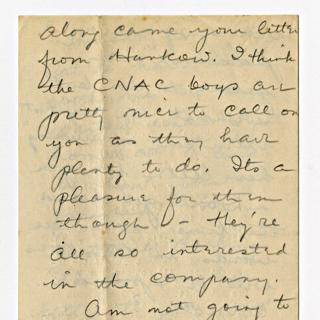 along came your letter
from Hankow. I think
the CNAC boys are
pretty nice to call on
you as they have
plenty to do. Its a
pleasure for them
though - they're
all so interested
in the company.
Am not going to